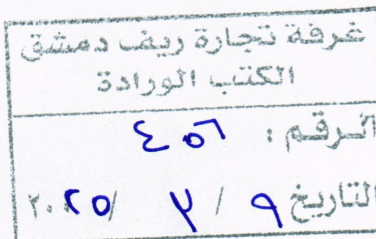 غرفة تجارة ريف دمشق
الكتب الورادة
الرقم : ٤٥٦
التاريخ ٩ / ٣ / ٢٠٢٥